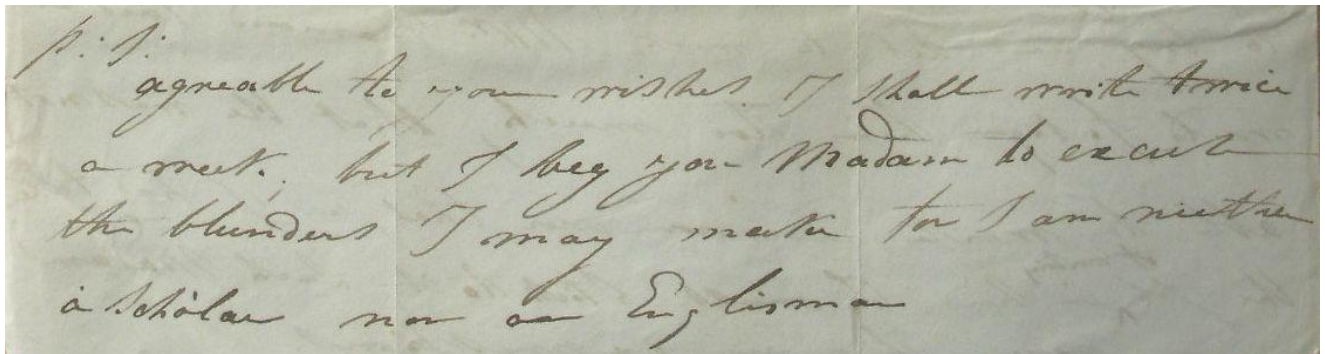 p: s:
agreable to your wishes I shall write twice
a week; but I beg you Madam to excuse
the blunders I may make for I am niether
a scholar nor an Englisman